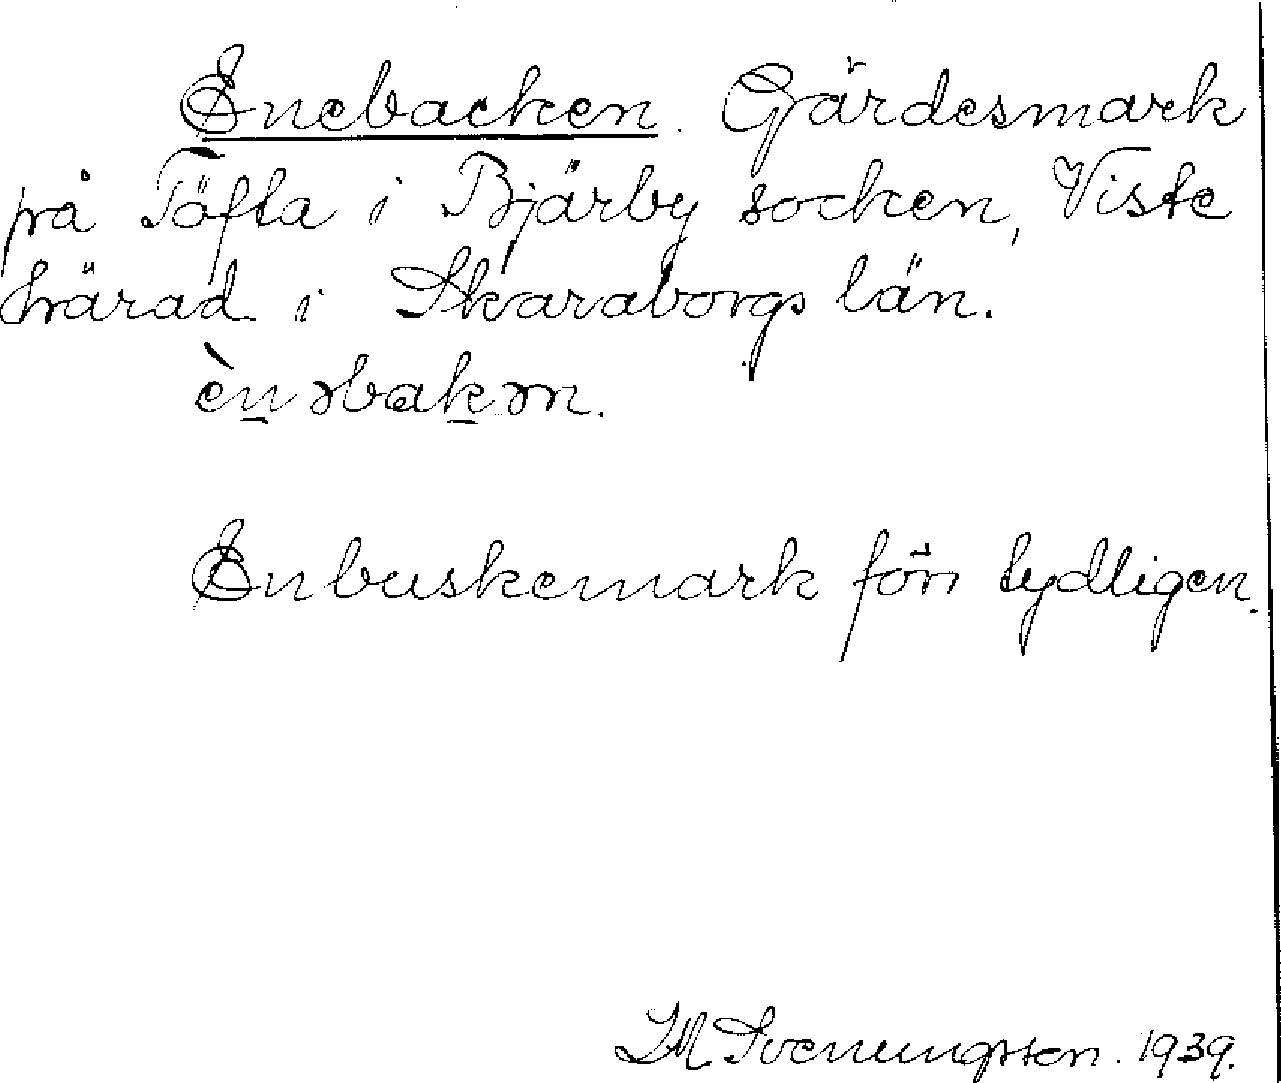 Enebacken. Gärdesmark
på Töfta i Bjärby socken, Viste
härad i Skaraborgs län.
èn̲əbak̲ən.
Enbuskemark förr tydligen.
IM Svenungsson. 1939.